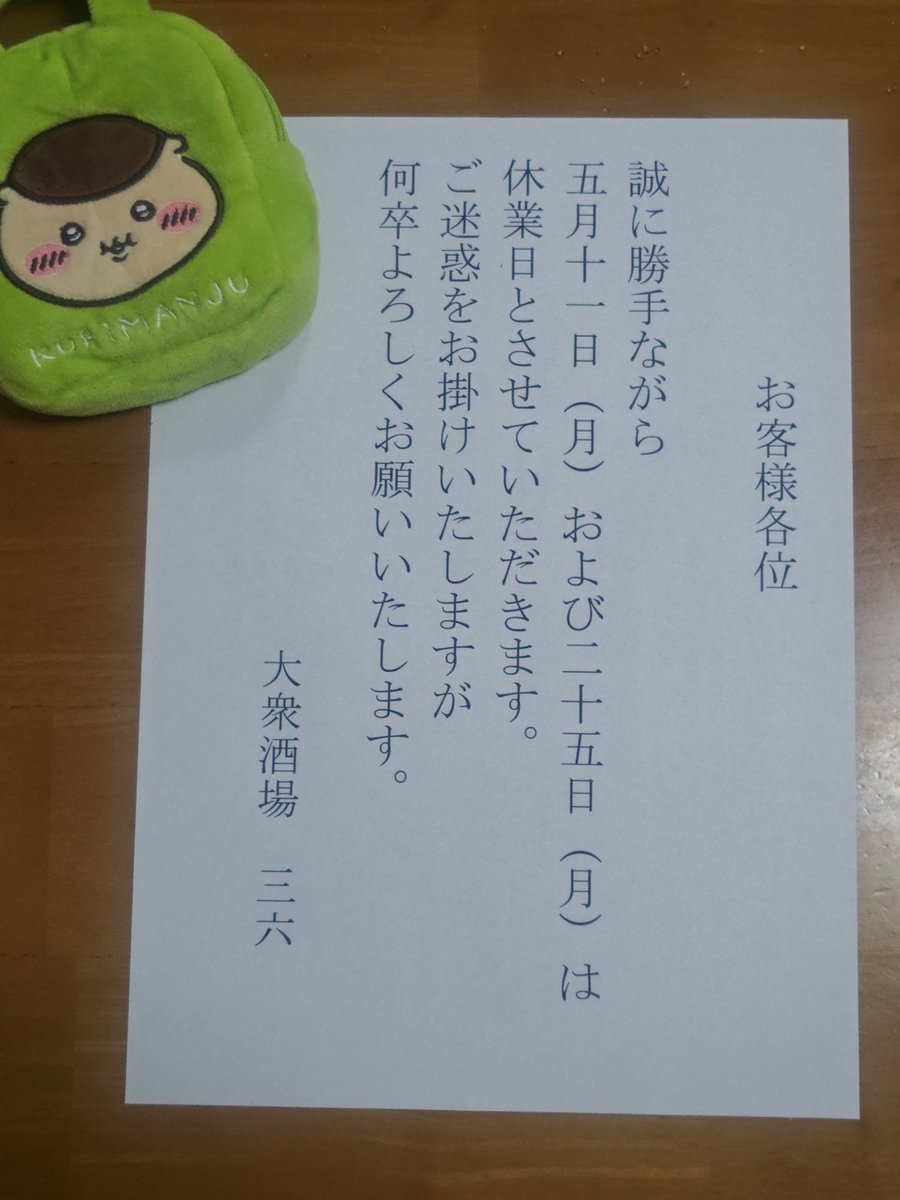 お客様各位
誠に勝手ながら
五月十一日（月）および二十五日（月）は
休業日とさせていただきます。
ご迷惑をお掛けいたしますが
何卒よろしくお願いいたします。
大衆酒場　三六
KURIMANJU